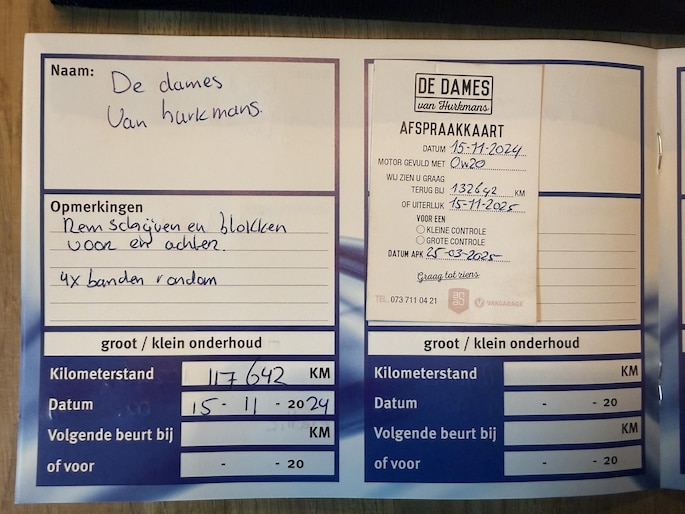 Naam:
De dames
Van hurkmans.
Opmerkingen
Rem schijven en blokken
voor en achter.
4x banden rondom
groot / klein onderhoud
Kilometerstand 117642 KM
Datum 15 - 11 - 2024
Volgende beurt bij KM
of voor - - 20
DE DAMES
van Hurkmans
AFSPRAAKKAART
DATUM 15-11-2024
MOTOR GEVULD MET 0w20
WIJ ZIEN U GRAAG
TERUG BIJ 132642 KM
OF UITERLIJK 15-11-2025
VOOR EEN
KLEINE CONTROLE
GROTE CONTROLE
DATUM APK 25-03-2025
Graag tot ziens
TEL. 073 711 04 21 VAKGARAGE
groot / klein onderhoud
Kilometerstand KM
Datum - - 20
Volgende beurt bij KM
of voor - - 20